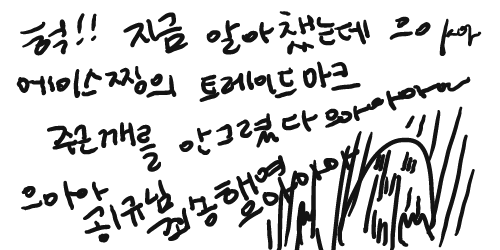 헉!! 지금 알아챘는데 으아아아
에이스찡의 트레이드마크
주근깨를 안그렸다 으아아아아
으아아 죄규님 죄송해여 으아아아